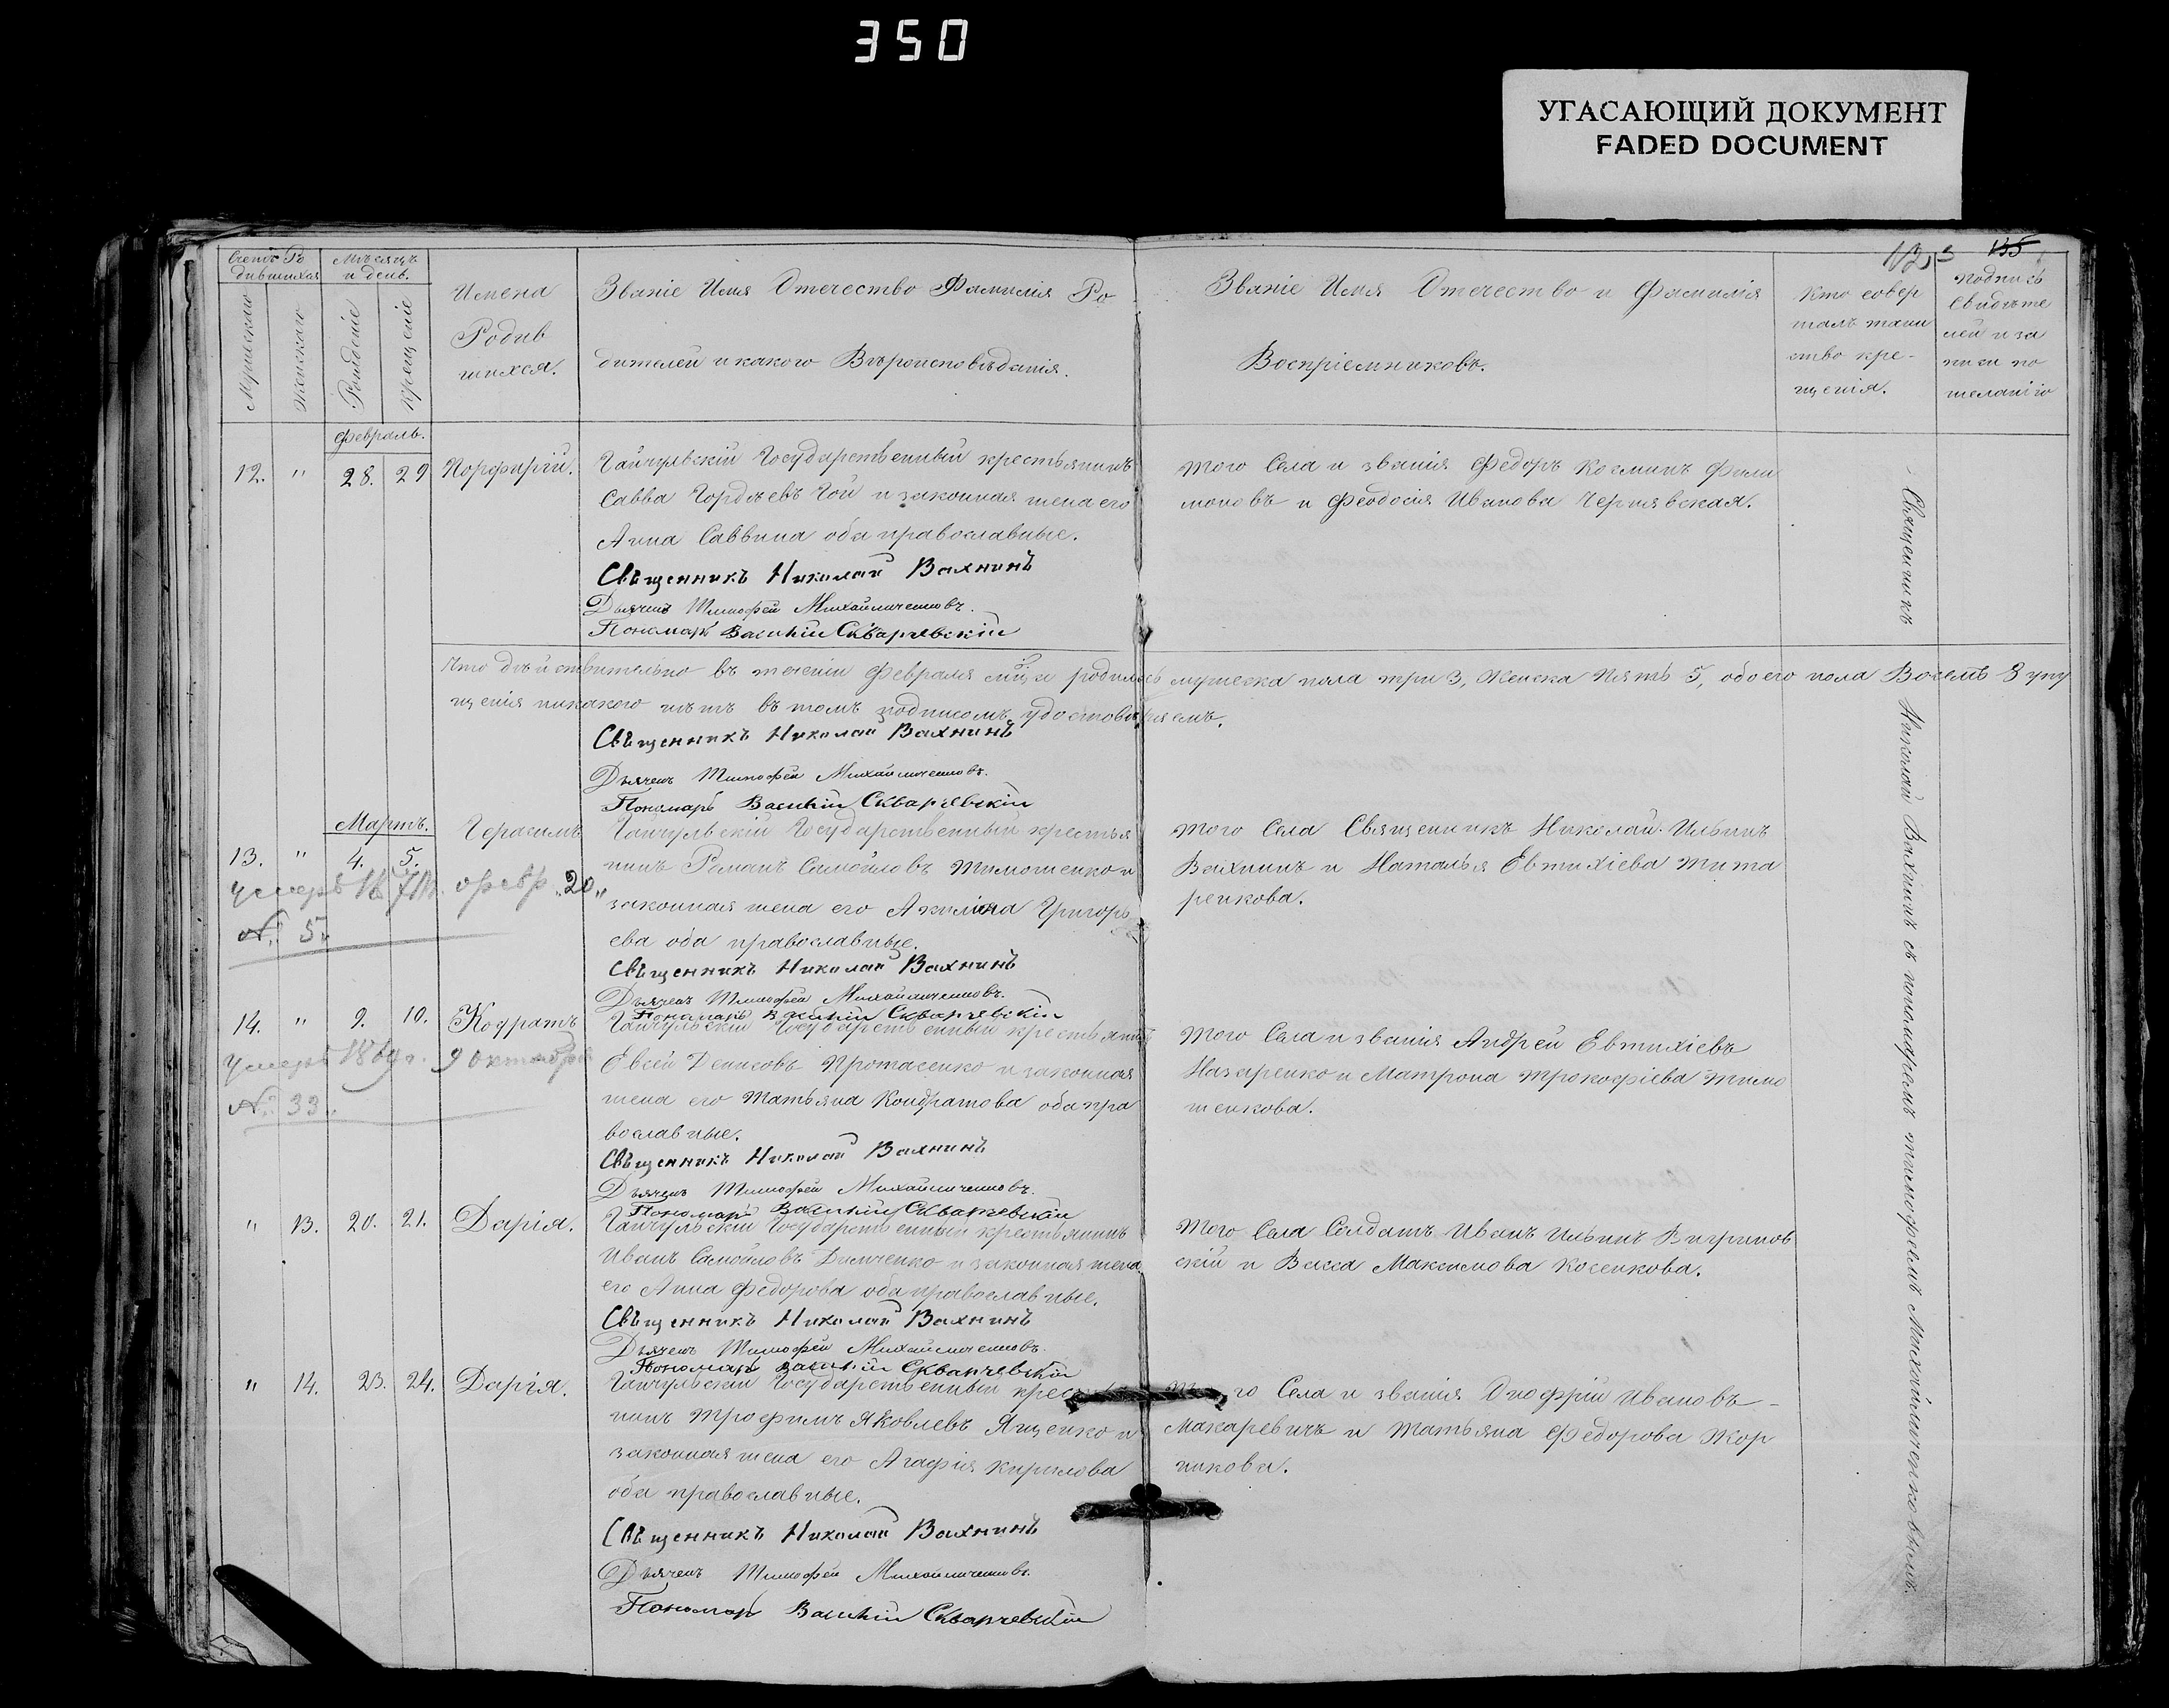 350
УГАСАЮЩИЙ ДОКУМЕНТ
FADED DOCUMENT
155
Счетъ Ро
дившихся
Мѣсяцъ
и день.
Мужеского
Женского
Рождение
Крещение
Имена
Родив
шихся.
Званіе Имя Отечество Фамилія Ро
дителей и какого Вѣроисповѣданія.
Званіе Имя Отечество и Фамилія
Воспріемниковъ.
Кто совер
шалъ таин
ство кре-
щенія.
Подпись
Свидѣте
лей и за
писи по
желанію
Февраль.
12. " 28. 29 Порфирій.
Гайчульскій Государственный крестьянинъ
Савва Гордѣевъ Гой и законная жена его
Анна Саввина оба православные.
Свѣщенникъ Николай Вахнинъ
Дьячекъ Тимофей Михайличенковъ.
Пономарь Василій Скварчевскій
того Села и званія Федоръ Косминъ Фили
моновъ и Феодосія Иванова Чернявская.
Что дѣйствительно въ теченіи Февраля мца родилось мужеска пола три 3, Женска Пять 5, обоего пола Восемь 8 упу
щенія никакого нѣтъ въ томъ подписомъ удостовѣряемъ.
Свѣщенникъ Николай Вахнинъ
Дьячекъ Тимофей Михайличенковъ.
Пономарь Василій Скварчевскій
Мартъ.
13. " 4. 5. Герасимъ
Умеръ февр. 20"
№ 5.
Гайчульскій Государственный крестья
нинъ Романъ Самойловъ Тимошенко и
законная жена его Акилина Григорь
ева оба православные.
Свѣщенникъ Николай Вахнинъ
Дьячекъ Тимофей Михайличенковъ.
Пономарь Василій Скварчевскій
того Села Священникъ Николай Ильинъ
Вахнинъ и Наталья Евтихіева Тита
ренкова.
14. " 9. 10. Кодратъ
Умеръ 1869 г. 9 октября
№ 33.
Гайчульскій Государственный крестьянинъ
Евсей Денисовъ Протасенко и законная
жена его Татьяна Кондратова оба пра
вославные.
Свѣщенникъ Николай Вахнинъ
Дьячекъ Тимофей Михайличенковъ.
Пономарь Василій Скварчевскій
того Села и званія Андрей Евтихіевъ
Назаренко и Матрона Прокофіева Тимо
шенкова.
" 13. 20. 21. Дарія.
Гайчульскій Государственный крестьянинъ
Иванъ Самойловъ Демченко и законная жена
его Анна Федорова оба православные.
Свѣщенникъ Николай Вахнинъ
Дьячекъ Тимофей Михайличенковъ.
Пономарь Василій Скварчевскій
того Села Солдатъ Иванъ Ильинъ Вигринов
скій и Васса Максимова Косенкова.
" 14. 23. 24. Дарія.
Гайчульскій Государственный крестья
нинъ Трофимъ Яковлевъ Яценко и
законная жена его Агафія Кирилова
оба православные.
Свѣщенникъ Николай Вахнинъ
Дьячекъ Тимофей Михайличенковъ.
Пономарь Василій Скварчевскій
того Села и званія Онофрій Ивановъ -
Макаревичъ и Татьяна Федорова Кор
никова.
Священникъ Николай Вахнинъ съ пономаремъ Тимофеемъ Михайличенковымъ.